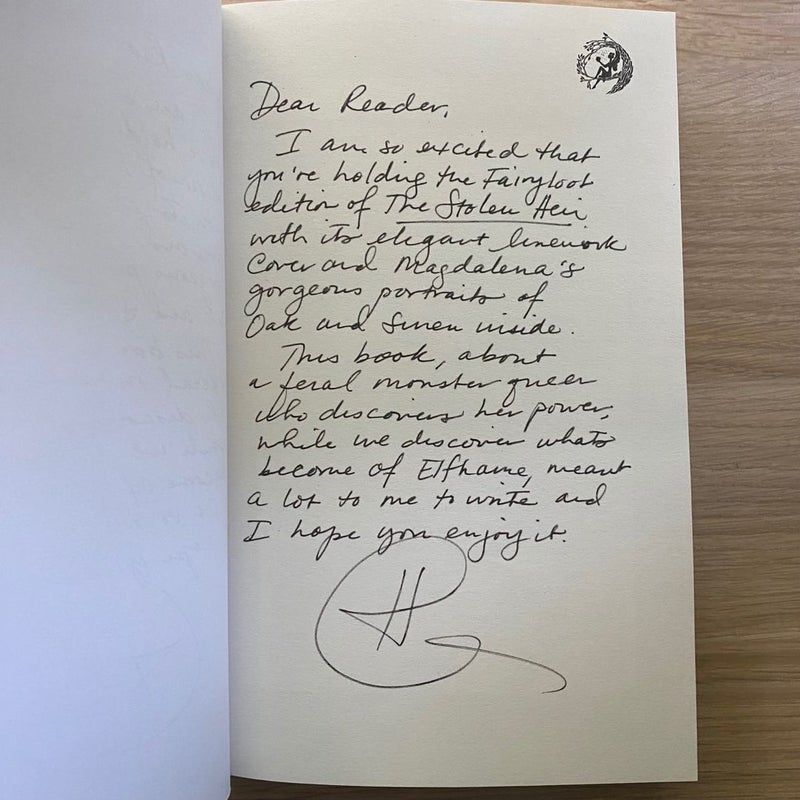 Dear Reader,
I am so excited that
you're holding the Fairyloot
edition of The Stolen Heir
with its elegant linework
Cover and Magdalena's
gorgeous portraits of
Oak and Suren inside.
This book, about
a feral monster queen
who discovers her power,
while we discover whats
become of Elfhame, meant
a lot to me to write and
I hope you enjoy it.
H